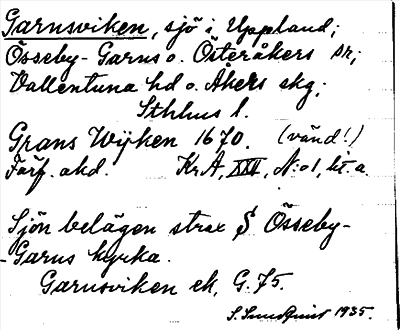 Garnsviken, sjö i Uppland;
Össeby-Garns o. Österåkers sk;
Vallentuna hd o. Åkers skg;
Sthlms l.
Grans Wijken 1670. (vänd!)
Förf. akd. Kr.A, XXV, N:o 1, lit. a.
Sjön belägen strax S Össeby-
-Garns kyrka.
Garnsviken ek, G. 75.
S. Sundquist 1935.